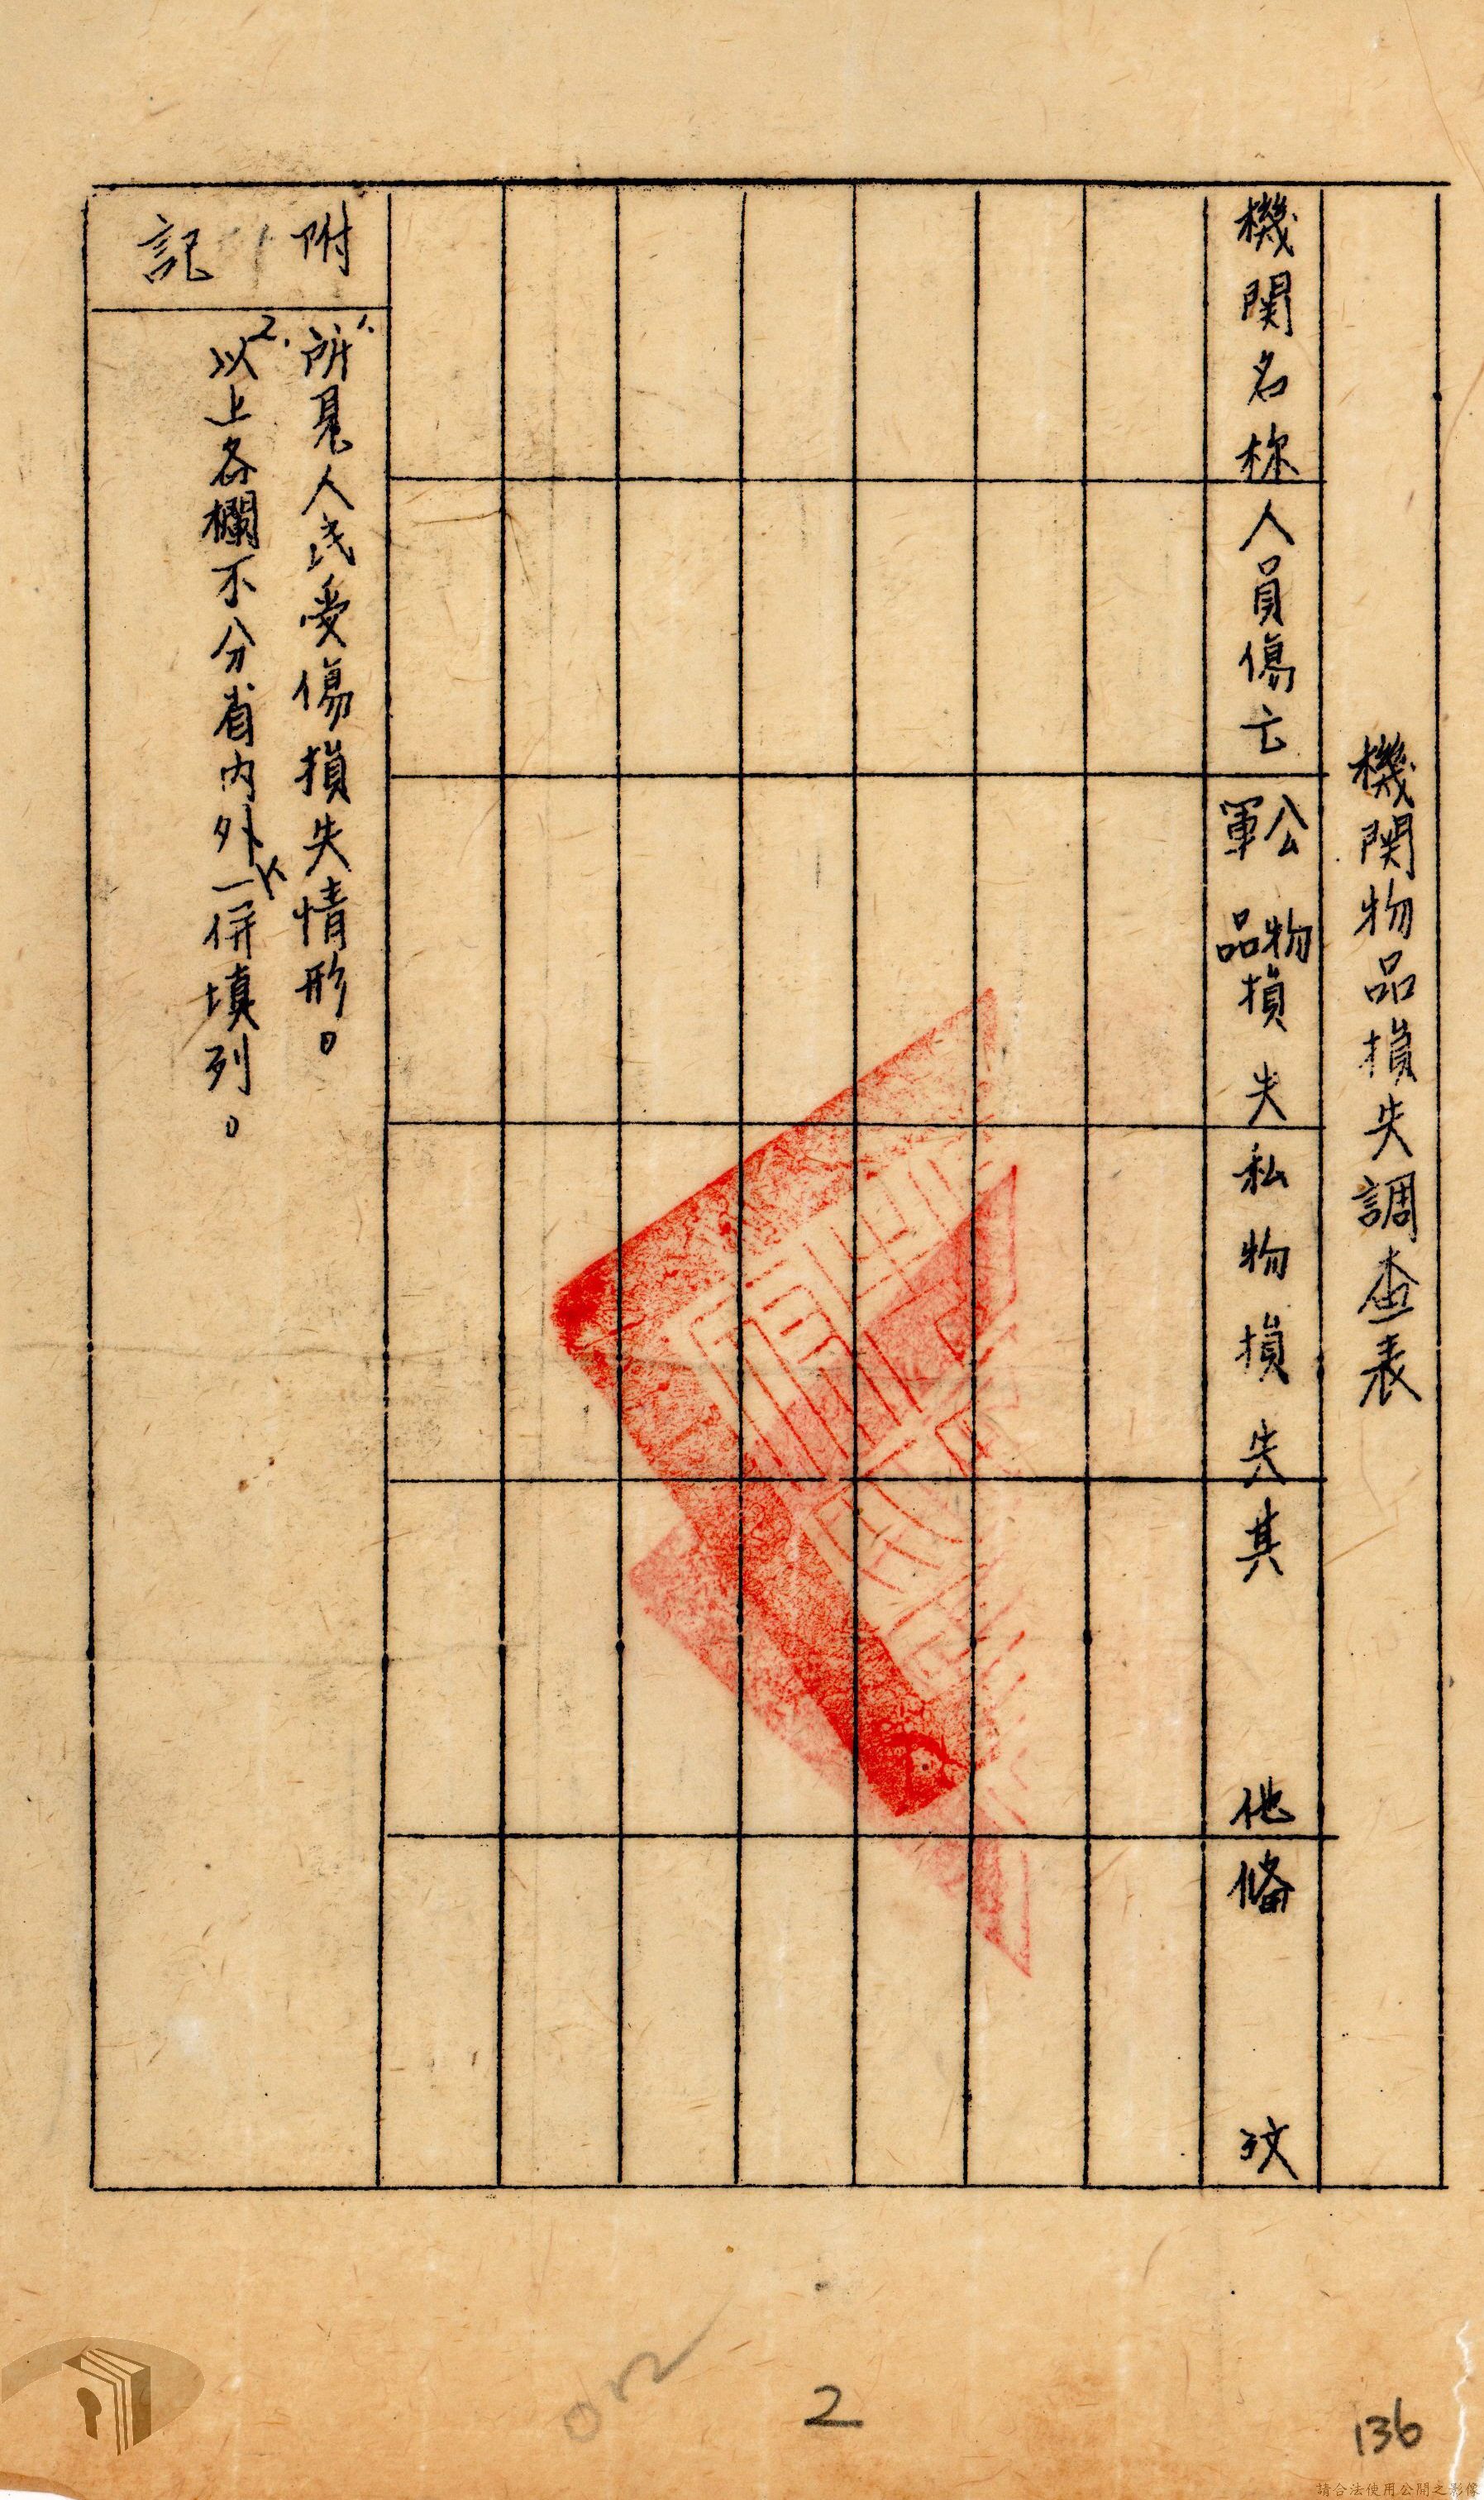 機関物品損失調查表
機関名称
人員傷亡
公軍物品損失
私物損失
其他
俻攷
附記
1.所見人民受傷損失情形。
2.以上各欄不分省內外一併填列。
002
2
136
請合法使用公開之影像